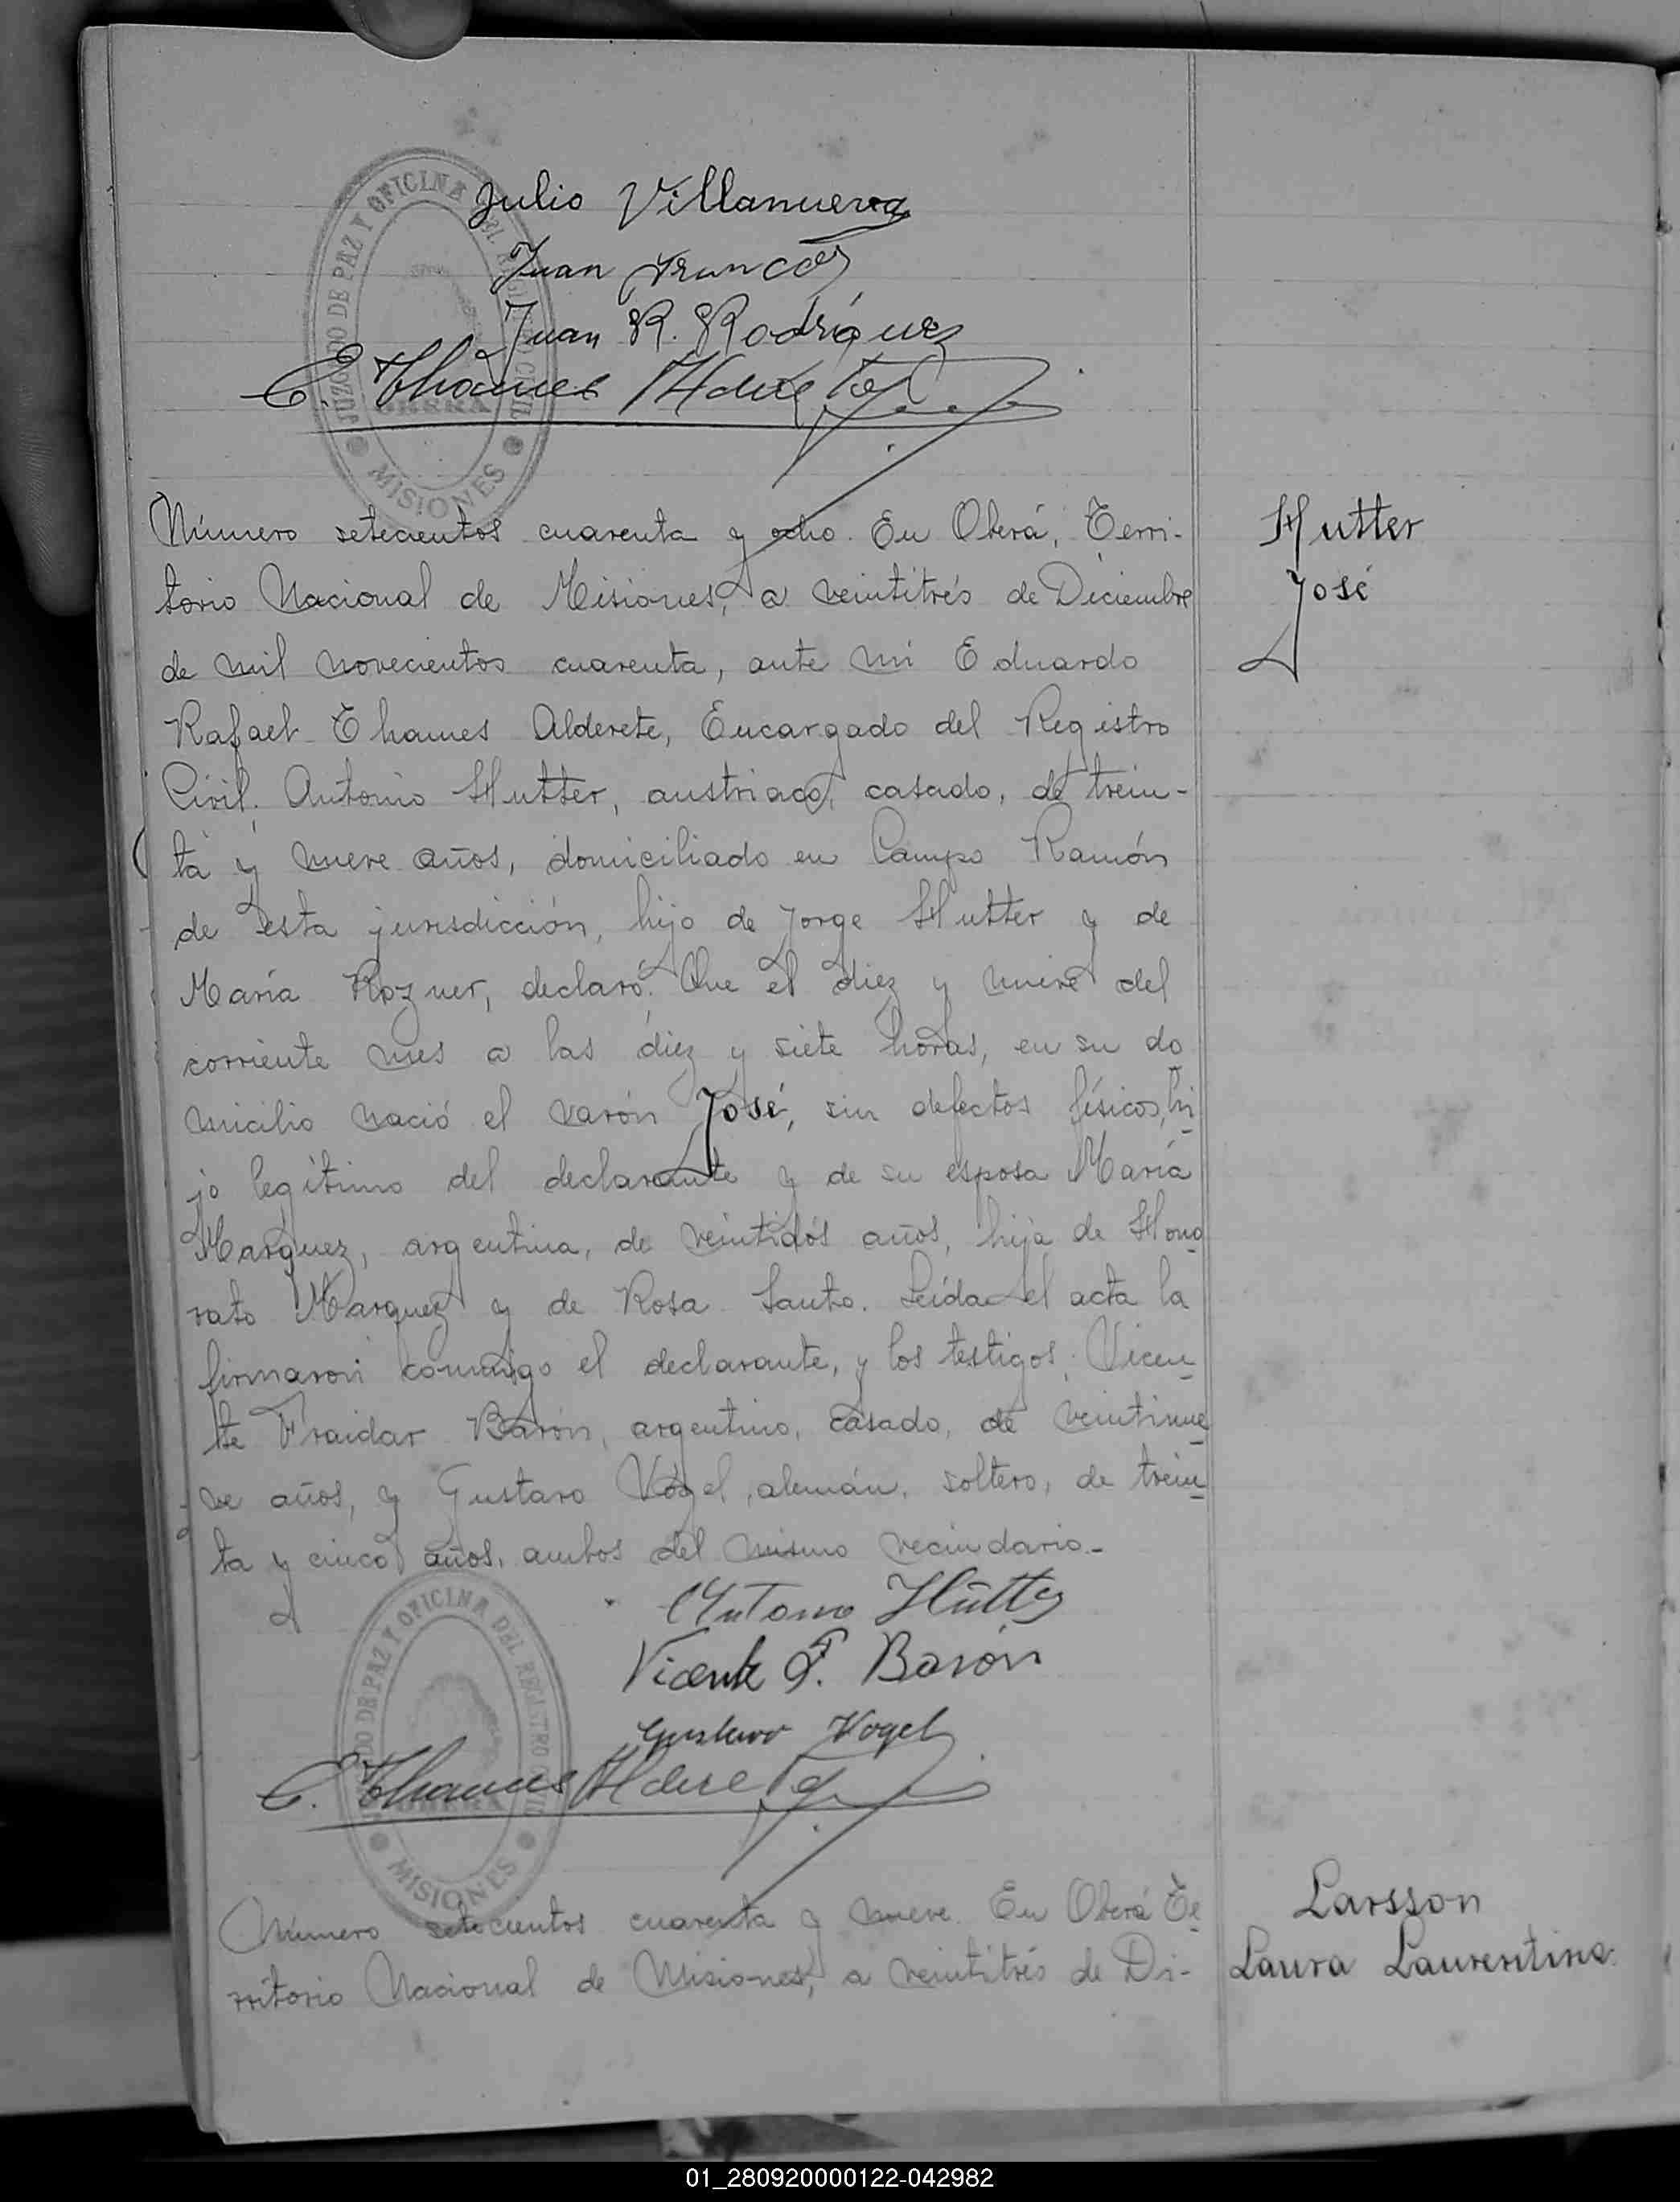 Julio Villanueva
Juan Francos
Juan R. Rodríguez
E. Thames Alderete
JUZGADO DE PAZ Y OFICINA DEL REGISTRO CIVIL
OBERA
MISIONES
Número setecientos cuarenta y ocho. En Oberá, Terri-
torio Nacional de Misiones, a veintitrés de Diciembre
de mil novecientos cuarenta, ante mi Eduardo
Rafael Thames Alderete, Encargado del Registro
Civil. Antonio Hutter, austriaco, casado, de trein-
ta y nueve años, domiciliado en Campo Ramón
de esta jurisdicción, hijo de Jorge Hutter y de
María Rozner, declaró: Que el diez y nueve del
corriente mes a las diez y siete horas, en su do
micilio nació el varón José, sin defectos físicos, hi
jo legítimo del declarante y de su esposa María
Marquez, argentina, de veintidós años, hija de Hono
rato Marquez y de Rosa Santo. Leída el acta la
firmaron conmigo el declarante, y los testigos: Vicen
te Fraidar Barón, argentino, casado, de veintinue
ve años, y Gustavo Vogel, alemán, soltero, de trein
ta y cinco años, ambos del mismo vecindario.-
Antonio Hütter
Vicente F. Barón
Gustavo Vogel
E. Thames Alderete
JUZGADO DE PAZ Y OFICINA DEL REGISTRO CIVIL
OBERA
MISIONES
Número setecientos cuarenta y nueve. En Oberá Te
rritorio Nacional de Misiones, a veintitrés de Di-
Hutter
José
Larsson
Laura Laurentina
01_280920000122-042982